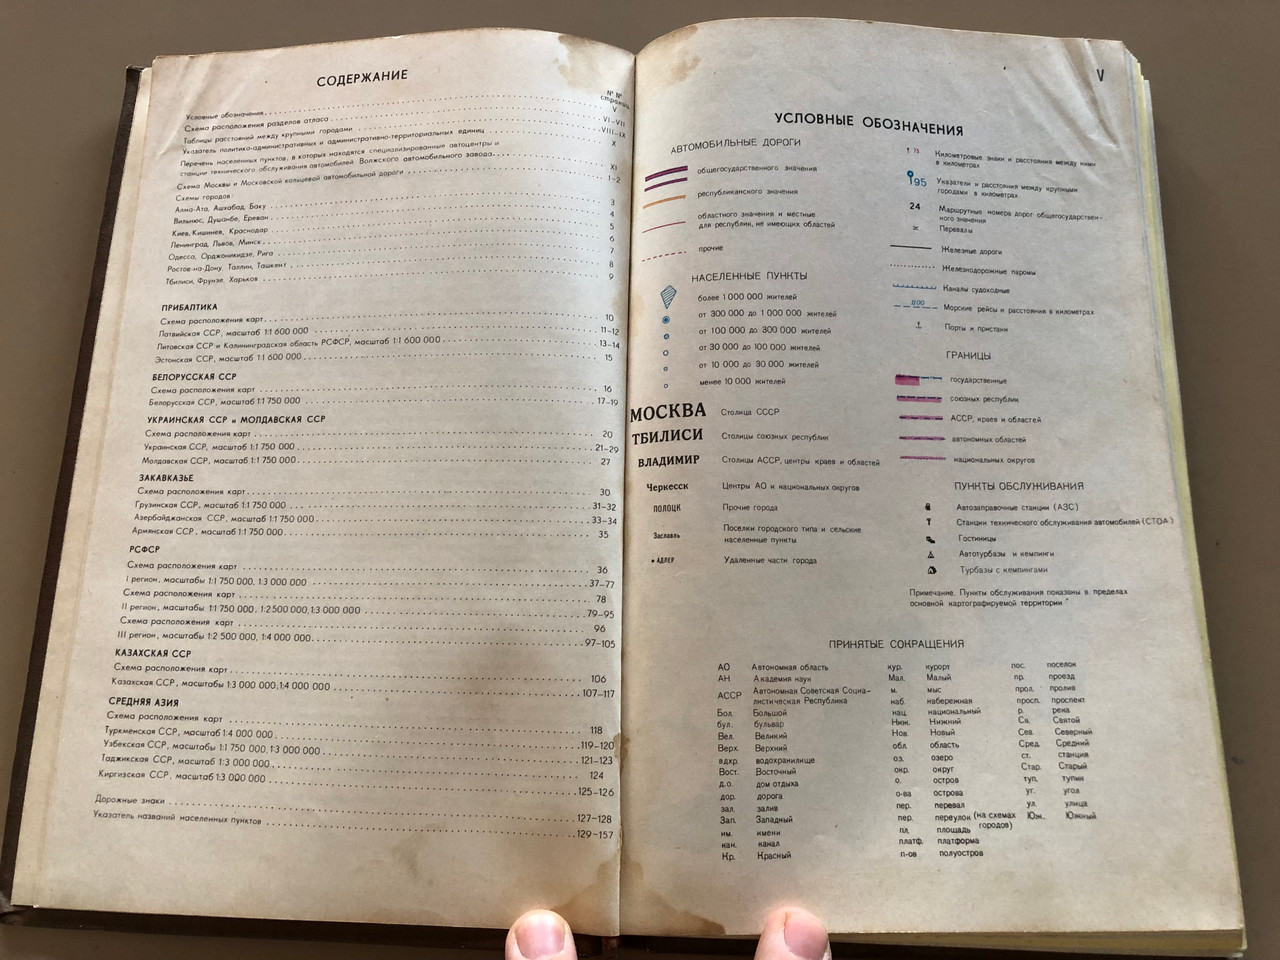 СОДЕРЖАНИЕ
№ №
страниц
Условные обозначения V
Схема расположения разделов атласа VI–VII
Таблицы расстояний между крупными городами VIII–IX
Указатель политико-административных и административно-территориальных единиц X
Перечень населенных пунктов, в которых находятся специализированные автоцентры и
станции технического обслуживания автомобилей Волжского автомобильного завода XI
Схема Москвы и Московской кольцевой автомобильной дороги 1–2
Схемы городов:
Алма-Ата, Ашхабад, Баку 3
Вильнюс, Душанбе, Ереван 4
Киев, Кишинев, Краснодар 5
Ленинград, Львов, Минск 6
Одесса, Орджоникидзе, Рига 7
Ростов-на-Дону, Таллин, Ташкент 8
Тбилиси, Фрунзе, Харьков 9
ПРИБАЛТИКА
Схема расположения карт 10
Латвийская ССР, масштаб 1:1 600 000 11–12
Литовская ССР и Калининградская область РСФСР, масштаб 1:1 600 000 13–14
Эстонская ССР, масштаб 1:1 600 000 15
БЕЛОРУССКАЯ ССР
Схема расположения карт 16
Белорусская ССР, масштаб 1:1 750 000 17–19
УКРАИНСКАЯ ССР и МОЛДАВСКАЯ ССР
Схема расположения карт 20
Украинская ССР, масштаб 1:1 750 000 21–29
Молдавская ССР, масштаб 1:1 750 000 27
ЗАКАВКАЗЬЕ
Схема расположения карт 30
Грузинская ССР, масштаб 1:1 750 000 31–32
Азербайджанская ССР, масштаб 1:1 750 000 33–34
Армянская ССР, масштаб 1:1 750 000 35
РСФСР
Схема расположения карт 36
I регион, масштабы 1:1 750 000, 1:3 000 000 37–77
Схема расположения карт 78
II регион, масштабы 1:1 750 000, 1:2 500 000, 1:3 000 000 79–95
Схема расположения карт 96
III регион, масштабы 1:2 500 000, 1:4 000 000 97–105
КАЗАХСКАЯ ССР
Схема расположения карт 106
Казахская ССР, масштабы 1:3 000 000, 1:4 000 000 107–117
СРЕДНЯЯ АЗИЯ
Схема расположения карт 118
Туркменская ССР, масштаб 1:4 000 000 119–120
Узбекская ССР, масштабы 1:1 750 000, 1:3 000 000 121–123
Таджикская ССР, масштаб 1:3 000 000 124
Киргизская ССР, масштаб 1:3 000 000 125–126
Дорожные знаки 127–128
Указатель названий населенных пунктов 129–157
V
УСЛОВНЫЕ ОБОЗНАЧЕНИЯ
АВТОМОБИЛЬНЫЕ ДОРОГИ
общегосударственного значения
республиканского значения
областного значения и местные
для республик, не имеющих областей
прочие
НАСЕЛЕННЫЕ ПУНКТЫ
более 1 000 000 жителей
от 300 000 до 1 000 000 жителей
от 100 000 до 300 000 жителей
от 30 000 до 100 000 жителей
от 10 000 до 30 000 жителей
менее 10 000 жителей
МОСКВА Столица СССР
ТБИЛИСИ Столицы союзных республик
ВЛАДИМИР Столицы АССР, центры краев и областей
Черкесск Центры АО и национальных округов
ПОЛОЦК Прочие города
Заславль Поселки городского типа и сельские
населенные пункты
АДЛЕР Удаленные части города
Километровые знаки и расстояния между ними
в километрах
95 Указатели и расстояния между крупными
городами в километрах
24 Маршрутные номера дорог общегосударствен-
ного значения
Перевалы
Железные дороги
Железнодорожные паромы
Каналы судоходные
Морские рейсы и расстояния в километрах
Порты и пристани
ГРАНИЦЫ
государственные
союзных республик
АССР, краев и областей
автономных областей
национальных округов
ПУНКТЫ ОБСЛУЖИВАНИЯ
Автозаправочные станции (АЗС)
Станции технического обслуживания автомобилей (СТОА)
Гостиницы
Автотурбазы и кемпинги
Турбазы с кемпингами
Примечание. Пункты обслуживания показаны в пределах
основной картографируемой территории
ПРИНЯТЫЕ СОКРАЩЕНИЯ
АО Автономная область
АН Академия наук
АССР Автономная Советская Социа-
листическая Республика
Бол. Большой
бул. бульвар
Вел. Великий
Верх. Верхний
вдхр. водохранилище
Вост. Восточный
д.о. дом отдыха
дор. дорога
зал. залив
Зап. Западный
им. имени
кан. канал
Кр. Красный
кур. курорт
Мал. Малый
м. мыс
наб. набережная
нац. национальный
Ниж. Нижний
Нов. Новый
обл. область
оз. озеро
окр. округ
о. остров
о-ва острова
пер. перевал
пер. переулок (на схемах
городов)
пл. площадь
платф. платформа
п-ов полуостров
пос. поселок
пр. проезд
прол. пролив
просп. проспект
р. река
Св. Святой
Сев. Северный
Сред. Средний
ст. станция
Стар. Старый
туп. тупик
уг. угол
ул. улица
Юж. Южный